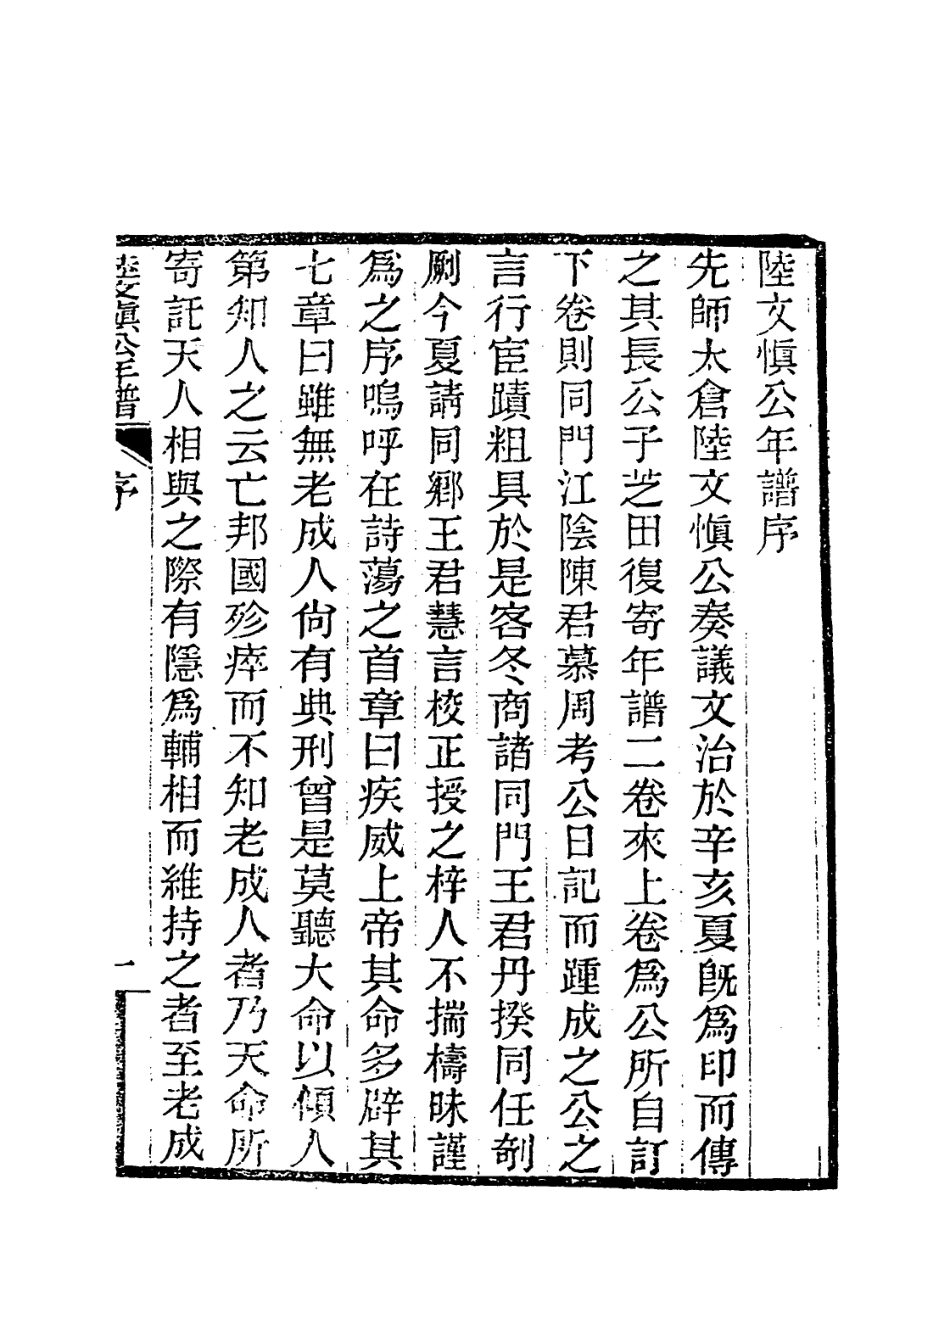 陸文慎公年譜序
先師太倉陸文慎公奏議文治於辛亥夏旣爲印而傳
之其長公子芝田復寄年譜二卷來上卷爲公所自訂
下卷則同門江陰陳君慕周考公日記而踵成之公之
言行宦蹟粗具於是客冬商諸同門王君丹揆同任剞
劂今夏請同鄉王君慧言校正授之梓人不揣檮昧謹
爲之序嗚呼在詩蕩之首章曰疾威上帝其命多辟其
七章曰雖無老成人尙有典刑曾是莫聽大命以傾人
第知人之云亡邦國殄瘁而不知老成人者乃天命所
寄託天人相與之際有隱爲輔相而維持之者至老成
陸文慎公年譜
序
一